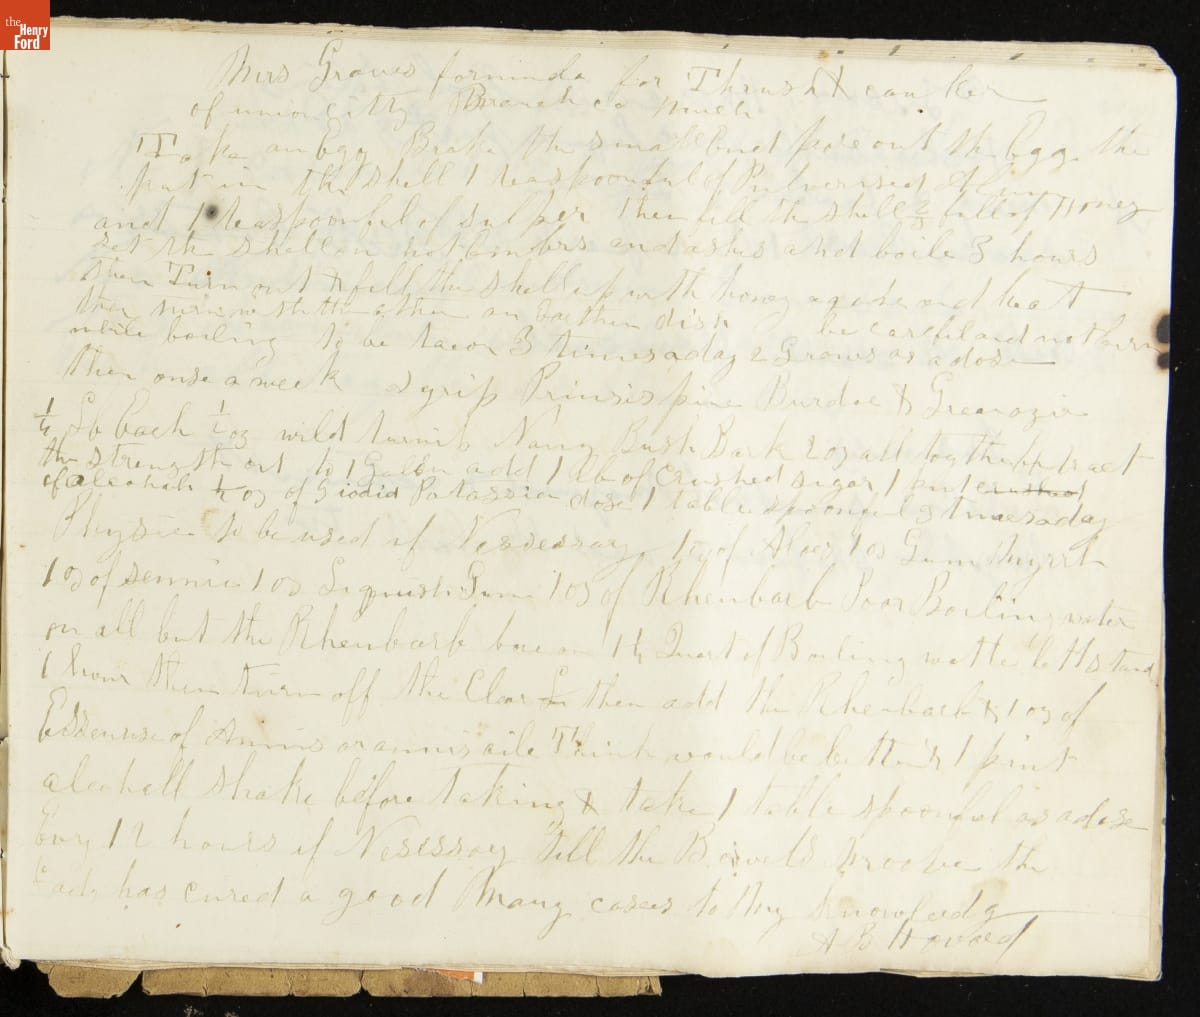 the
Henry
Ford
Mrs Graves formula for Thrush & canker
of union city Branch co Mich
Take an Egg Brake the small End pore out the Egg. the
put in the shell 1 teaspoonful of Pulverised Alum
and 1 teaspoonful of sulper then fill the shell 2/3 full of Honey
set the shell on hot Embrs and ashes and boile 3 hours
then Turn out & fill the shell up with honey agane and heat
then turn with the other an Earthen dish be carful and not burn
while boiling to be taken 3 times a day 2 Grains as a dose
then onse a week Prinsis pine Burdoc &
1/4 Lb Each 1/2 oz wild turnip Nany Bush Bark 2 oz all together
the strength out to 1 Galon add 1 Lb of Crushed sugar 1 pint
of alcohah 1/2 oz of Potassia dose 1 table spoonful 3 times a day
Physic to be used if Nessessary 1 oz of Aloes 1 oz Gum Myrrh
1 oz of sennia 1 oz Gum 1 oz of Rhenbarb Poor Boiling water
on all but the Rhenbarb Quart of Boiling watter let stand
1 hour then turn off the Clear then add the Rhenbarb & 1 oz of
Essense of Annis or annis oile Think would be better & 1 pint
alcohall shake before taking & take 1 table spoonful as a dose
Evry 12 hours if Nesessary till the Bowels moove the
Lady has cured a good Many cases to My knowledg
A B Hovard